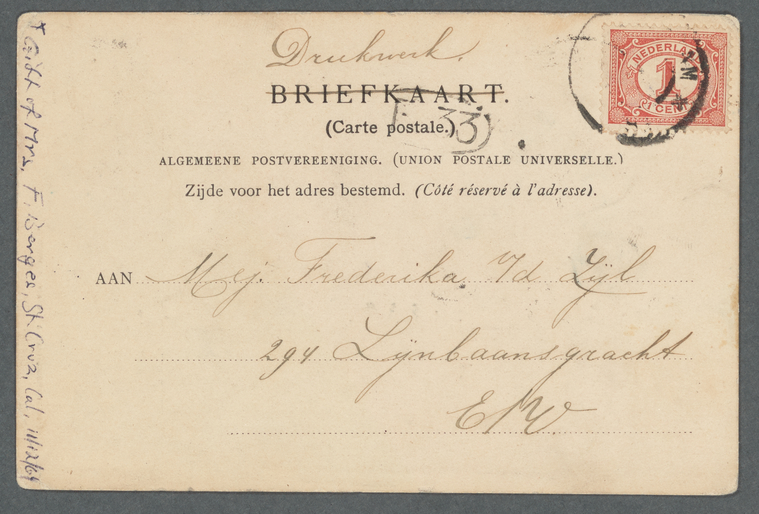 Drukwerk.
BRIEFKAART.
(Carte postale.)
33
ALGEMEENE POSTVEREENIGING. (UNION POSTALE UNIVERSELLE.)
Zijde voor het adres bestemd. (Côté réservé à l'adresse).
NEDERLAND
1
1 CENT
AAN Mej. Frederika v/d Zijl
294 Lijnbaansgracht
E/W
* Gift of Mrs. F. Bergee, St. Cruz, Cal, 11/12/69